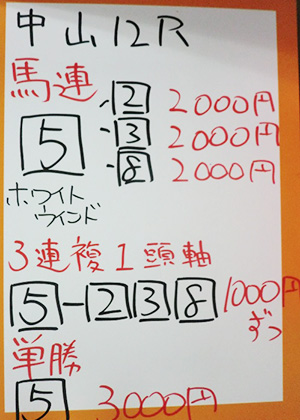 中山12R
馬連
5 ・2 2000円
・3 2000円
・8 2000円
ホワイト
ウインド
3連複1頭軸
5-238 1000円
ずつ
単勝
5 3000円